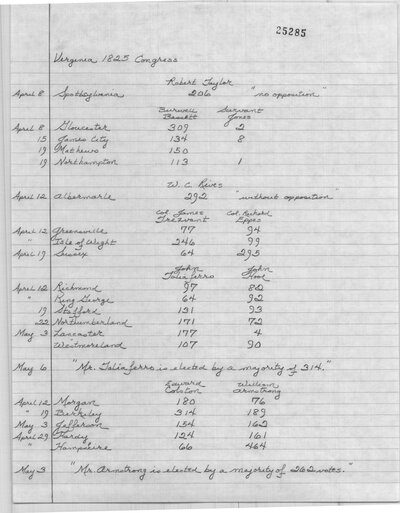 25285
Virginia 1825 Congress
Robert Taylor
April 8 Spottsylvania 206 "no opposition"
Burwell Bassett Servant Jones
April 8 Gloucester 309 2
15 James City 134 8
19 Mathews 150
19 Northampton 113 1
W. C. Rives
April 12 Albemarle 292 "without opposition"
Col. James Trezvant Col. Richard Eppes
April 12 Greensville 77 94
" Isle of Wight 246 99
April 19 Sussex 64 295
John Taliaferro John Hood
April 12 Richmond 97 82
" King George 64 92
19 Stafford 131 93
22 Northumberland 171 72
May 3 Lancaster 177 4
Westmoreland 107 90
May 6 "Mr. Taliaferro is elected by a majority of 314."
Edward Colston William Armstrong
April 12 Morgan 180 76
" 19 Berkeley 314 189
May 3 Jefferson 154 162
April 29 Hardy 124 161
" Hampshire 66 464
May 3 "Mr. Armstrong is elected by a majority of 262 votes."